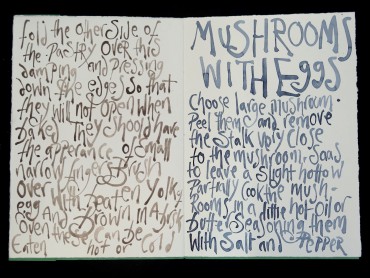 fold the other side of
the pastry over this
damping and pressing
down the edges so that
they will not open when
Baked They should have
the apperance of small
narrow fingers Brush
over with Beaten yolk of
egg and Brown in A brisk
oven these Can Be
Eaten hot or Cold
MUSHROOMS
WITH Eggs
Choose large mushroom.
Peel them and remove
the stalk very close
to the mushroom, so as
to leave a slight hollow
Partially cook the mush-
Rooms in a little hot oil or
Butter Seasoning them
With Salt and PEPPER